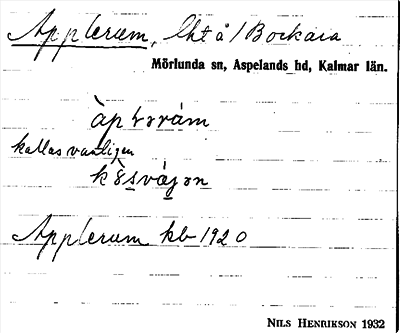 Applerum, lht å / Bockara
Mörlunda sn, Aspelands hd, Kalmar län.
àp lərám
kallas vanligen
Applerum kb 1920
NILS HENRIKSON 1932